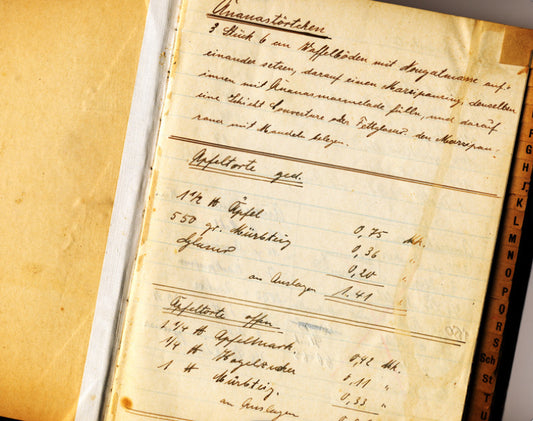 Ananastörtchen
3 Stück 6 cm Waffelböden mit Nougatmasse auf-
einander setzen, darauf einen Marzipanring, denselben
innen mit Ananasmarmelade füllen, nun darauf
eine Schicht Couverture oder Fettglasur den Marzipan-
rand mit Mandeln belegen.
Apfeltorte ged.
1 1/2 ℔ Äpfel 0,75 Mk.
550 gr. Mürbteig 0,36 "
Glasur 0,20 "
an Auslagen 1.41 "
Apfeltorte offen
2 1/4 ℔ Apfelmark. 0,42 Mk.
1/4 ℔ Hagelzucker 0,11 "
1 ℔ Mürbteig. 0,33 "
an Auslagen
F
G
H
J
K
L
M
N
O
P
Q
R
S
Sch
St
T
U